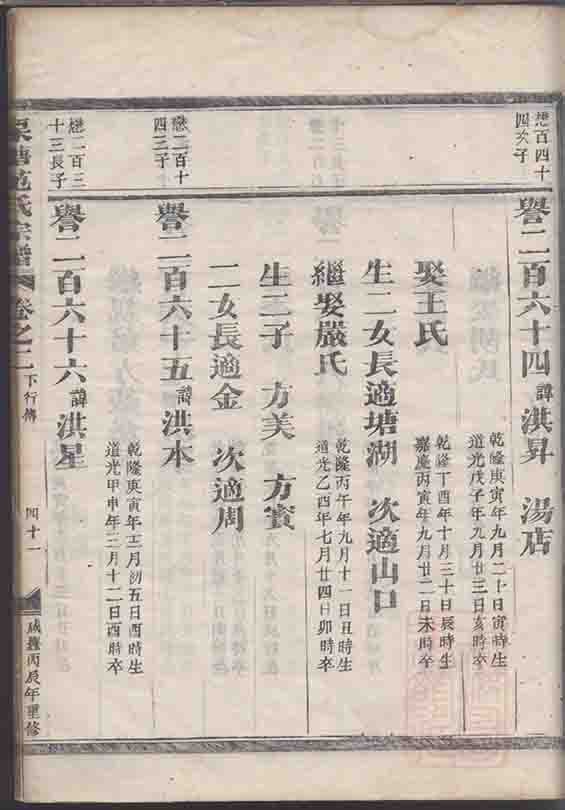 懋百四十
四次子
譽二百六十四 諱 淇昇 湯店
乾隆庚寅年九月二十日寅時生
道光戊子年九月廿三日亥時卒
娶王氏
乾隆丁酉年十月三十日辰時生
嘉慶丙寅年九月廿二日未時卒
生二女長適塘湖 次適山口
繼娶嚴氏
乾隆丙午年九月十一日丑時生
道光乙酉年七月廿四日卯時卒
生二子 方美 方賓
二女長適金 次適周
懋二百十
四三子
譽二百六十五 諱 洪本
懋二百三
十三長子
譽二百六十六 諱 洪星
乾隆庚寅年 月初五日酉時生
道光甲申年三月十二日酉時卒
范氏宗譜 卷之二 下行傳 四十一 咸豐丙辰年重修